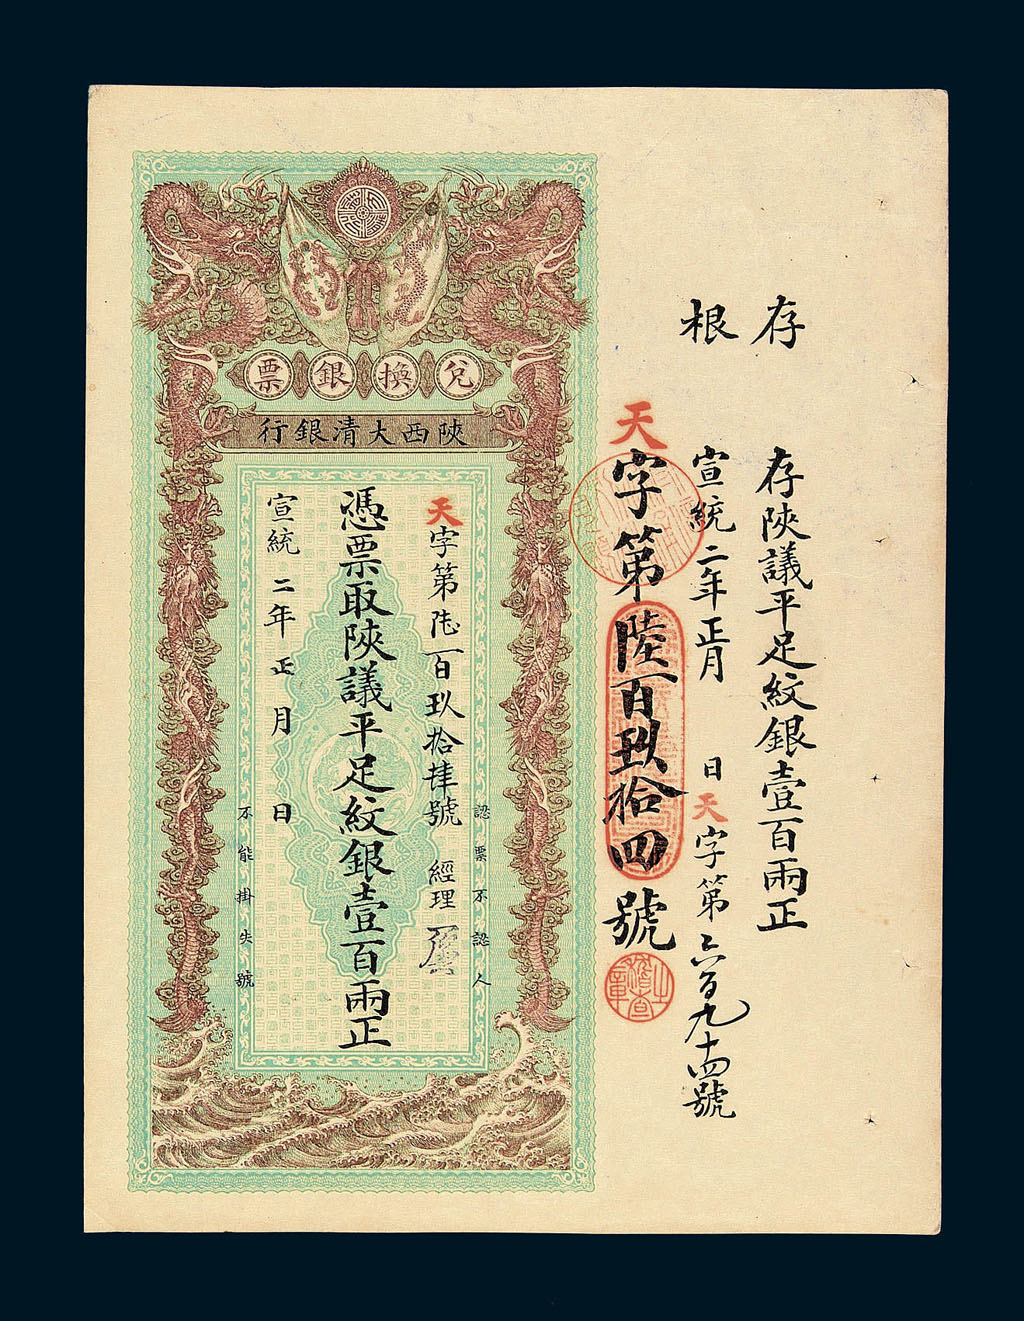 存根
存陝議平足紋銀壹百兩正
宣統二年正月 日天字第六百九十四號
天字第陸百玖拾四號
兌換銀票
陝西大清銀行
認票不認人
天字第陸百玖拾肆號 經理
憑票取陝議平足紋銀壹百兩正
宣統二年正月 日
不能掛失號